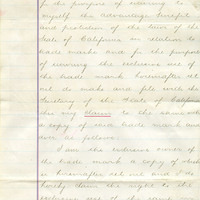 for the purpose of securing to
myself the advantage benefit
and protection of the laws of the
State of California in relation to
trade marks and for the purpose
of securing the exclusive use of
the trade mark hereinafter set
out do make and file with the
Secretary of the State of California
this my Claim to the same with
a copy of said trade mark and
as follows.
I am the exclusive owner of
the trade mark a copy of which
is hereinafter set out and I do
hereby claim the right to the
exclusive use of the same